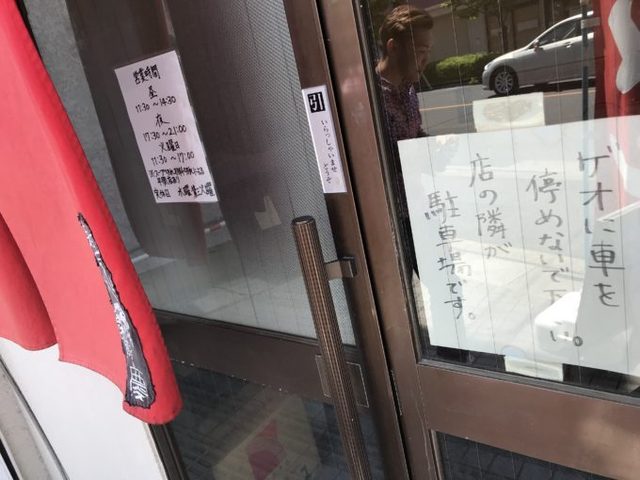 営業時間
昼
11:30～14:30
夜
17:30～21:00
火曜日
11:30～17:00
定休日 水曜
引
いらっしゃいませ
どうぞ
ゲオに車を
停めないで下さい。
店の隣が
駐車場です。